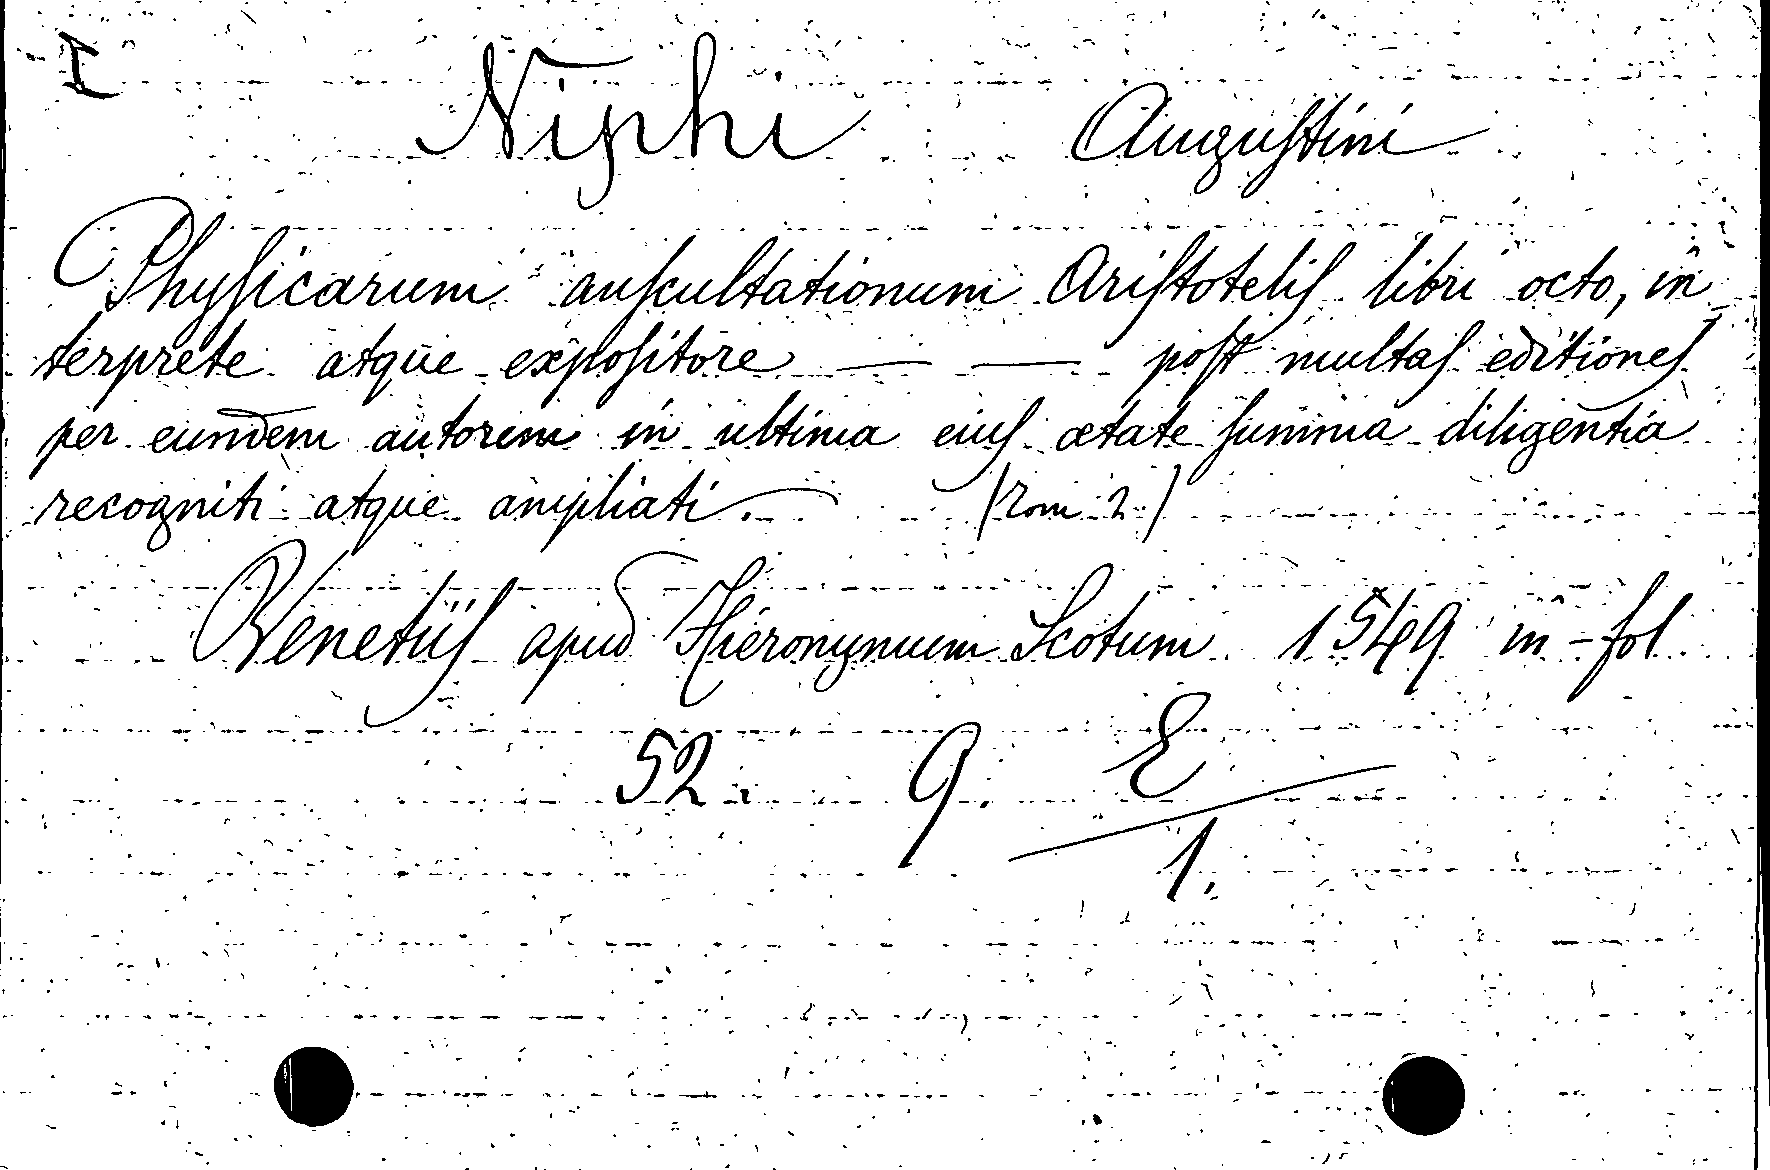 I
Niphi Augustini
Physicarum auscultationum Aristotelis libri octo, in
terprete atque expositore — — post multas editiones
per eundem autorem in ultima eius ætate summa diligentia
recogniti atque ampliati. (Tom 2.)
Venetiis apud Hieronymum Scotum 1549 in-fol
52. 9. E
1.